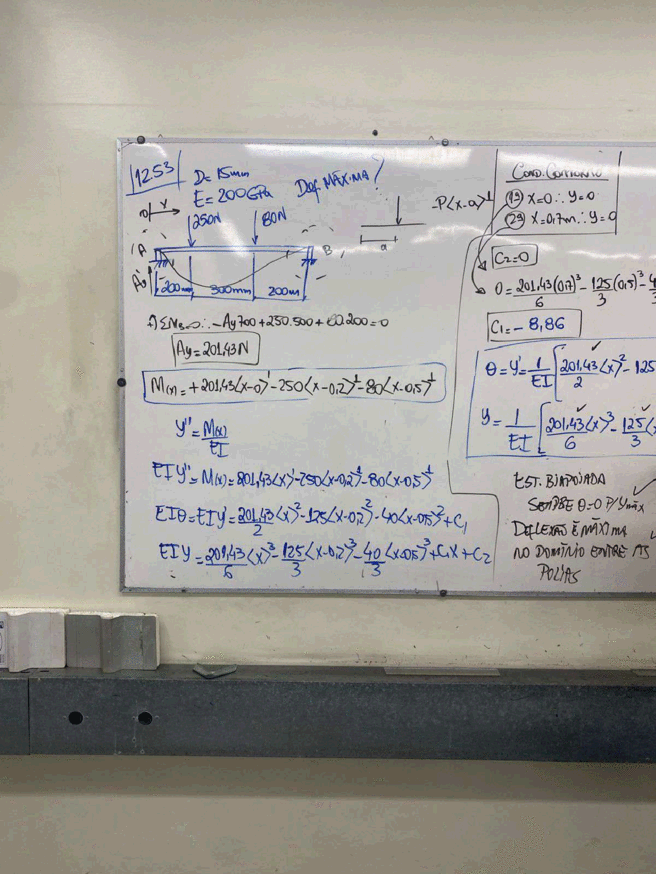 1253
D= 15mm
E= 200GPa
DEF. MÁXIMA?
250N
80N
A
B
Ay
200mm
300mm
200m
ΣMB=0∴ -Ay700+250.500+80.200=0
Ay=201,43N
M(x)= +201,43<x-0>¹-250<x-0,2>¹-80<x-0,5>¹
y''= M(x)/EI
EIy''= M(x)= 201,43<x>¹-250<x-0,2>¹-80<x-0,5>¹
EIθ=EIy'= 201,43/2<x>²-125<x-0,2>²-40<x-0,5>²+C1
EIy= 201,43/6<x>³-125/3<x-0,2>³-40/3<x-0,5>³+C1x+C2
-P<x-a>¹
a
COND. CONTORNO
1ª x=0∴ y=0
2ª x=0,7m∴ y=0
C2=0
0= 201,43(0,7)³/6 - 125(0,5)³/3 - 4
C1= - 8,86
θ=y'= 1/EI [201,43<x>²/2 - 125
y= 1/EI [201,43<x>³/6 - 125<x
EST. BIAPOIADA
SEMPRE θ=0 P/ ymáx
DEFLEXÃO É MÁXIMA
NO DOMÍNIO ENTRE AS
POLIAS